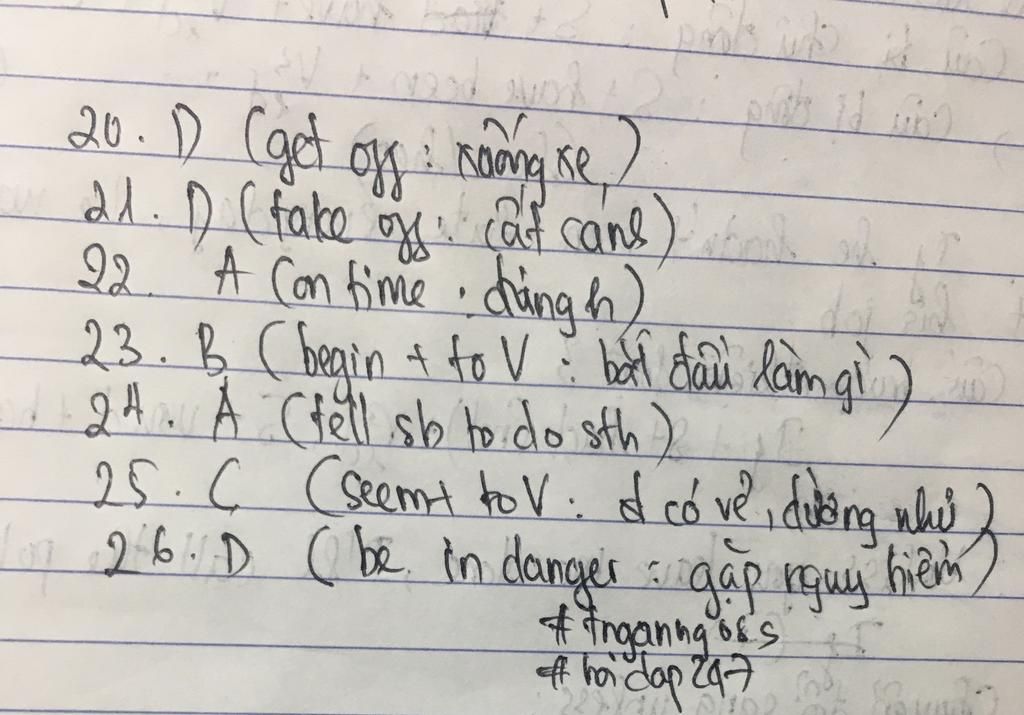 20. D (get off : xuống xe)
21. D (take off : cất cánh)
22. A (on time : đúng h)
23. B (begin + to V : bắt đầu làm gì)
24. A (tell sb to do sth)
25. C (seem + to V : có vẻ, dường như)
26. D (be in danger : gặp nguy hiểm)
# hoidap247